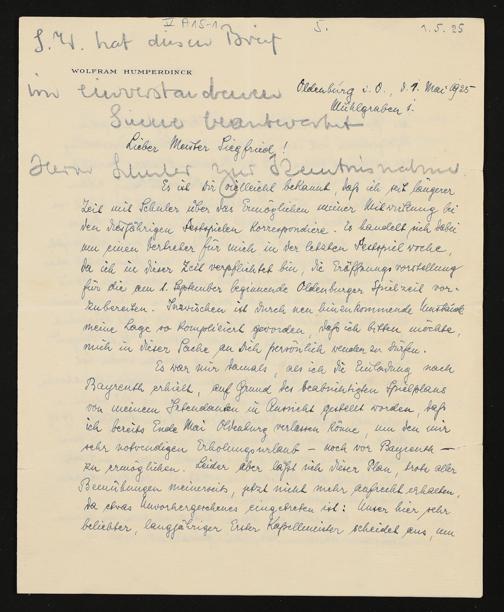 V A 15-1
5.
1.5.25
S. W. hat diesen Brief
WOLFRAM HUMPERDINCK
im einverstandenen
Oldenburg i. O., d. 1. Mai 1925
Mühlgraben 1.
Sinne beantwortet
Lieber Meister Siegfried!
Herrn Schuler zur Kenntnisnahme
Es ist Dir vielleicht bekannt, daß ich seit längerer
Zeit mit Schuler über das Ermöglichen meiner Mitwirkung bei
den diesjährigen Festspielen korrespondiere. Es handelt sich dabei
um einen Vertreter für mich in der letzten Festspielwoche,
da ich in dieser Zeit verpflichtet bin, die Eröffnungsvorstellung
für die am 1. September beginnende Oldenburger Spielzeit vor-
zubereiten. Inzwischen ist durch neu hinzukommende Umstände
meine Lage so kompliziert geworden, daß ich bitten möchte,
mich in dieser Sache an Dich persönlich wenden zu dürfen.
Es war mir damals, als ich die Einladung nach
Bayreuth erhielt, auf Grund des beabsichtigten Spielplans
von meinem Intendanten in Aussicht gestellt worden, daß
ich bereits Ende Mai Oldenburg verlassen könne, um den mir
sehr notwendigen Erholungsurlaub – noch vor Bayreuth –
zu ermöglichen. Leider aber läßt sich dieser Plan, trotz aller
Bemühungen meinerseits, jetzt nicht mehr aufrecht erhalten,
da etwas Unvorhergesehenes eingetreten ist: Unser hier sehr
beliebter, langjähriger Erster Kapellmeister scheidet aus, um